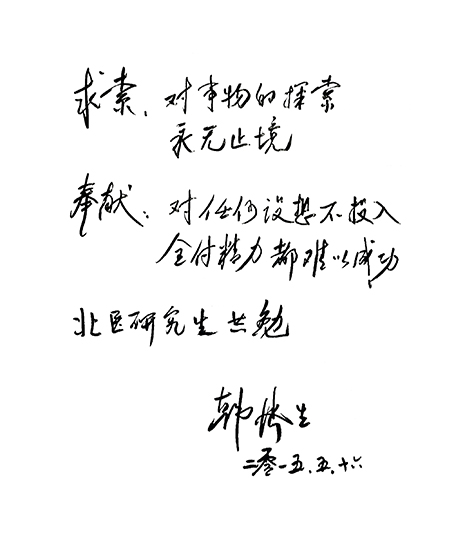 求索、对事物的探索
永无止境
奉献：对任何设想不投入
全付精力都难以成功
北医研究生共勉
韩济生
二零一五.五.十六